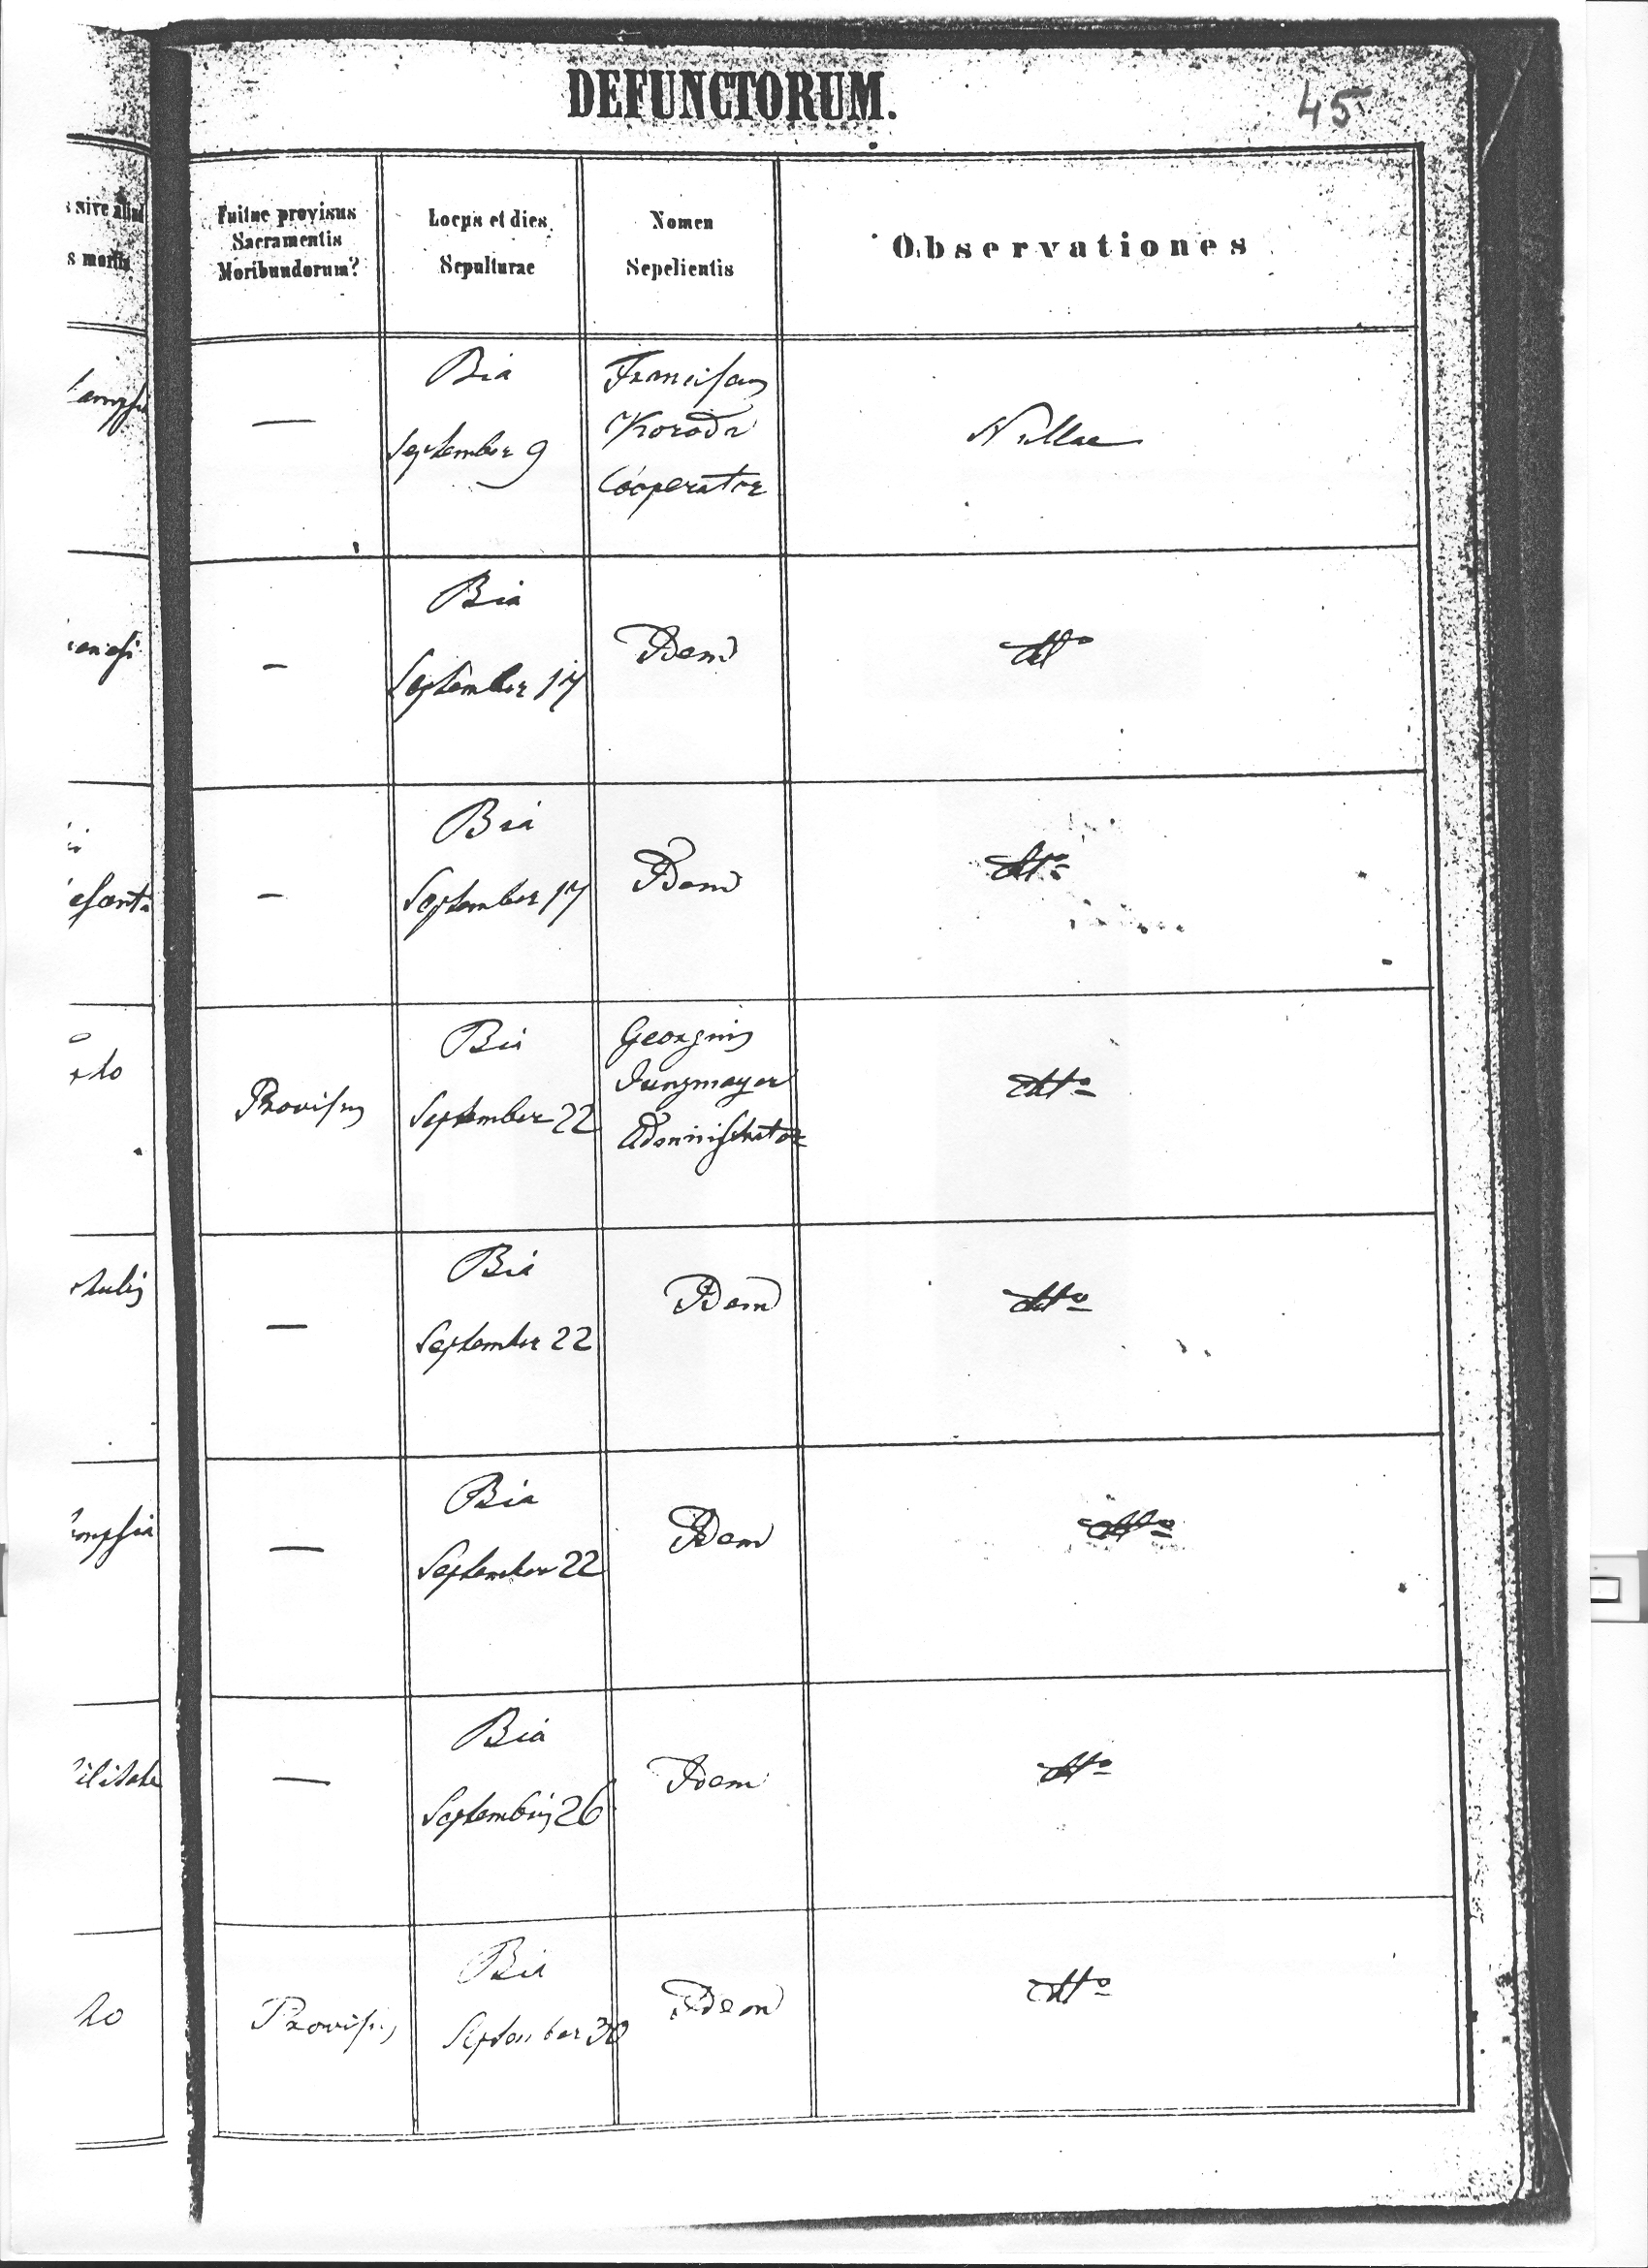 DEFUNCTORUM.
45
Fuitne provisus
Sacramentis
Moribundorum?
Locus et dies
Sepulturae
Nomen
Sepelientis
Observationes
—
Bia
September 9
Franciscus
Korada
Cooperator
Nullae
—
Bia
September 17
Idem
dtto
—
Bia
September 17
Idem
dtto
Provisus
Bia
September 22
Georgius
Jungmayer
Administrator
dtto
—
Bia
September 22
Idem
dtto
—
Bia
September 22
Idem
dtto
—
Bia
Septembris 26
Idem
dtto
Provisus
Bia
September 30
Idem
dtto